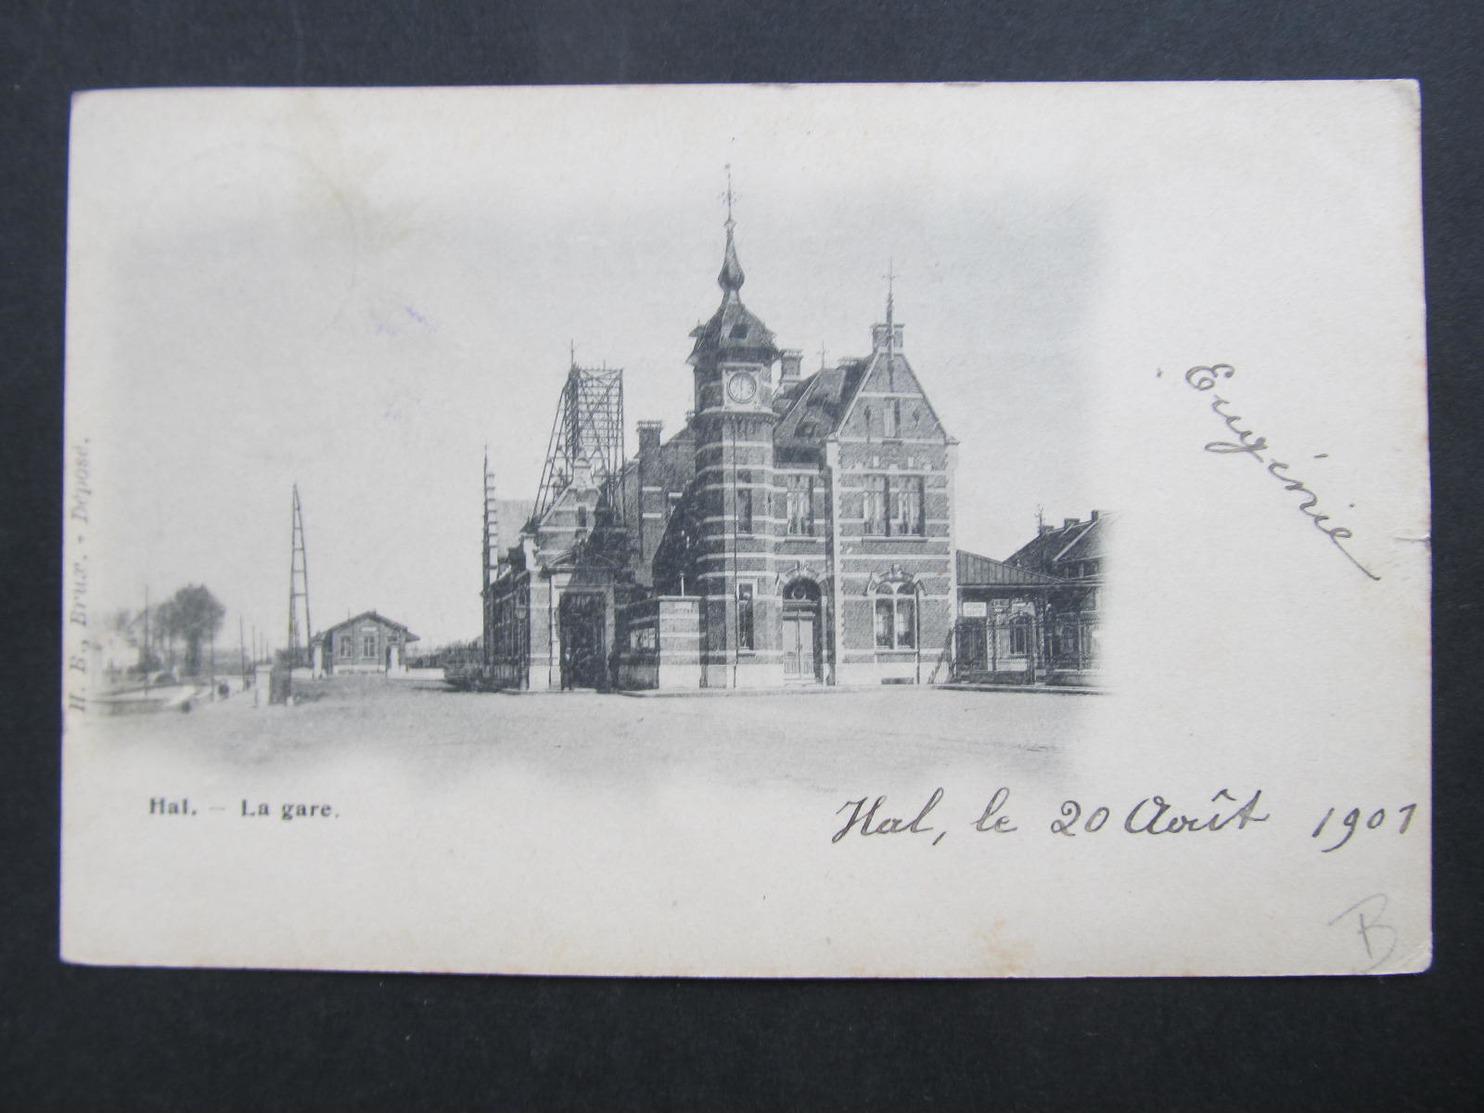 H. B., Brux. - Déposé.
Eugénie
Hal. — La gare.
Hal, le 20 Août 1901
B